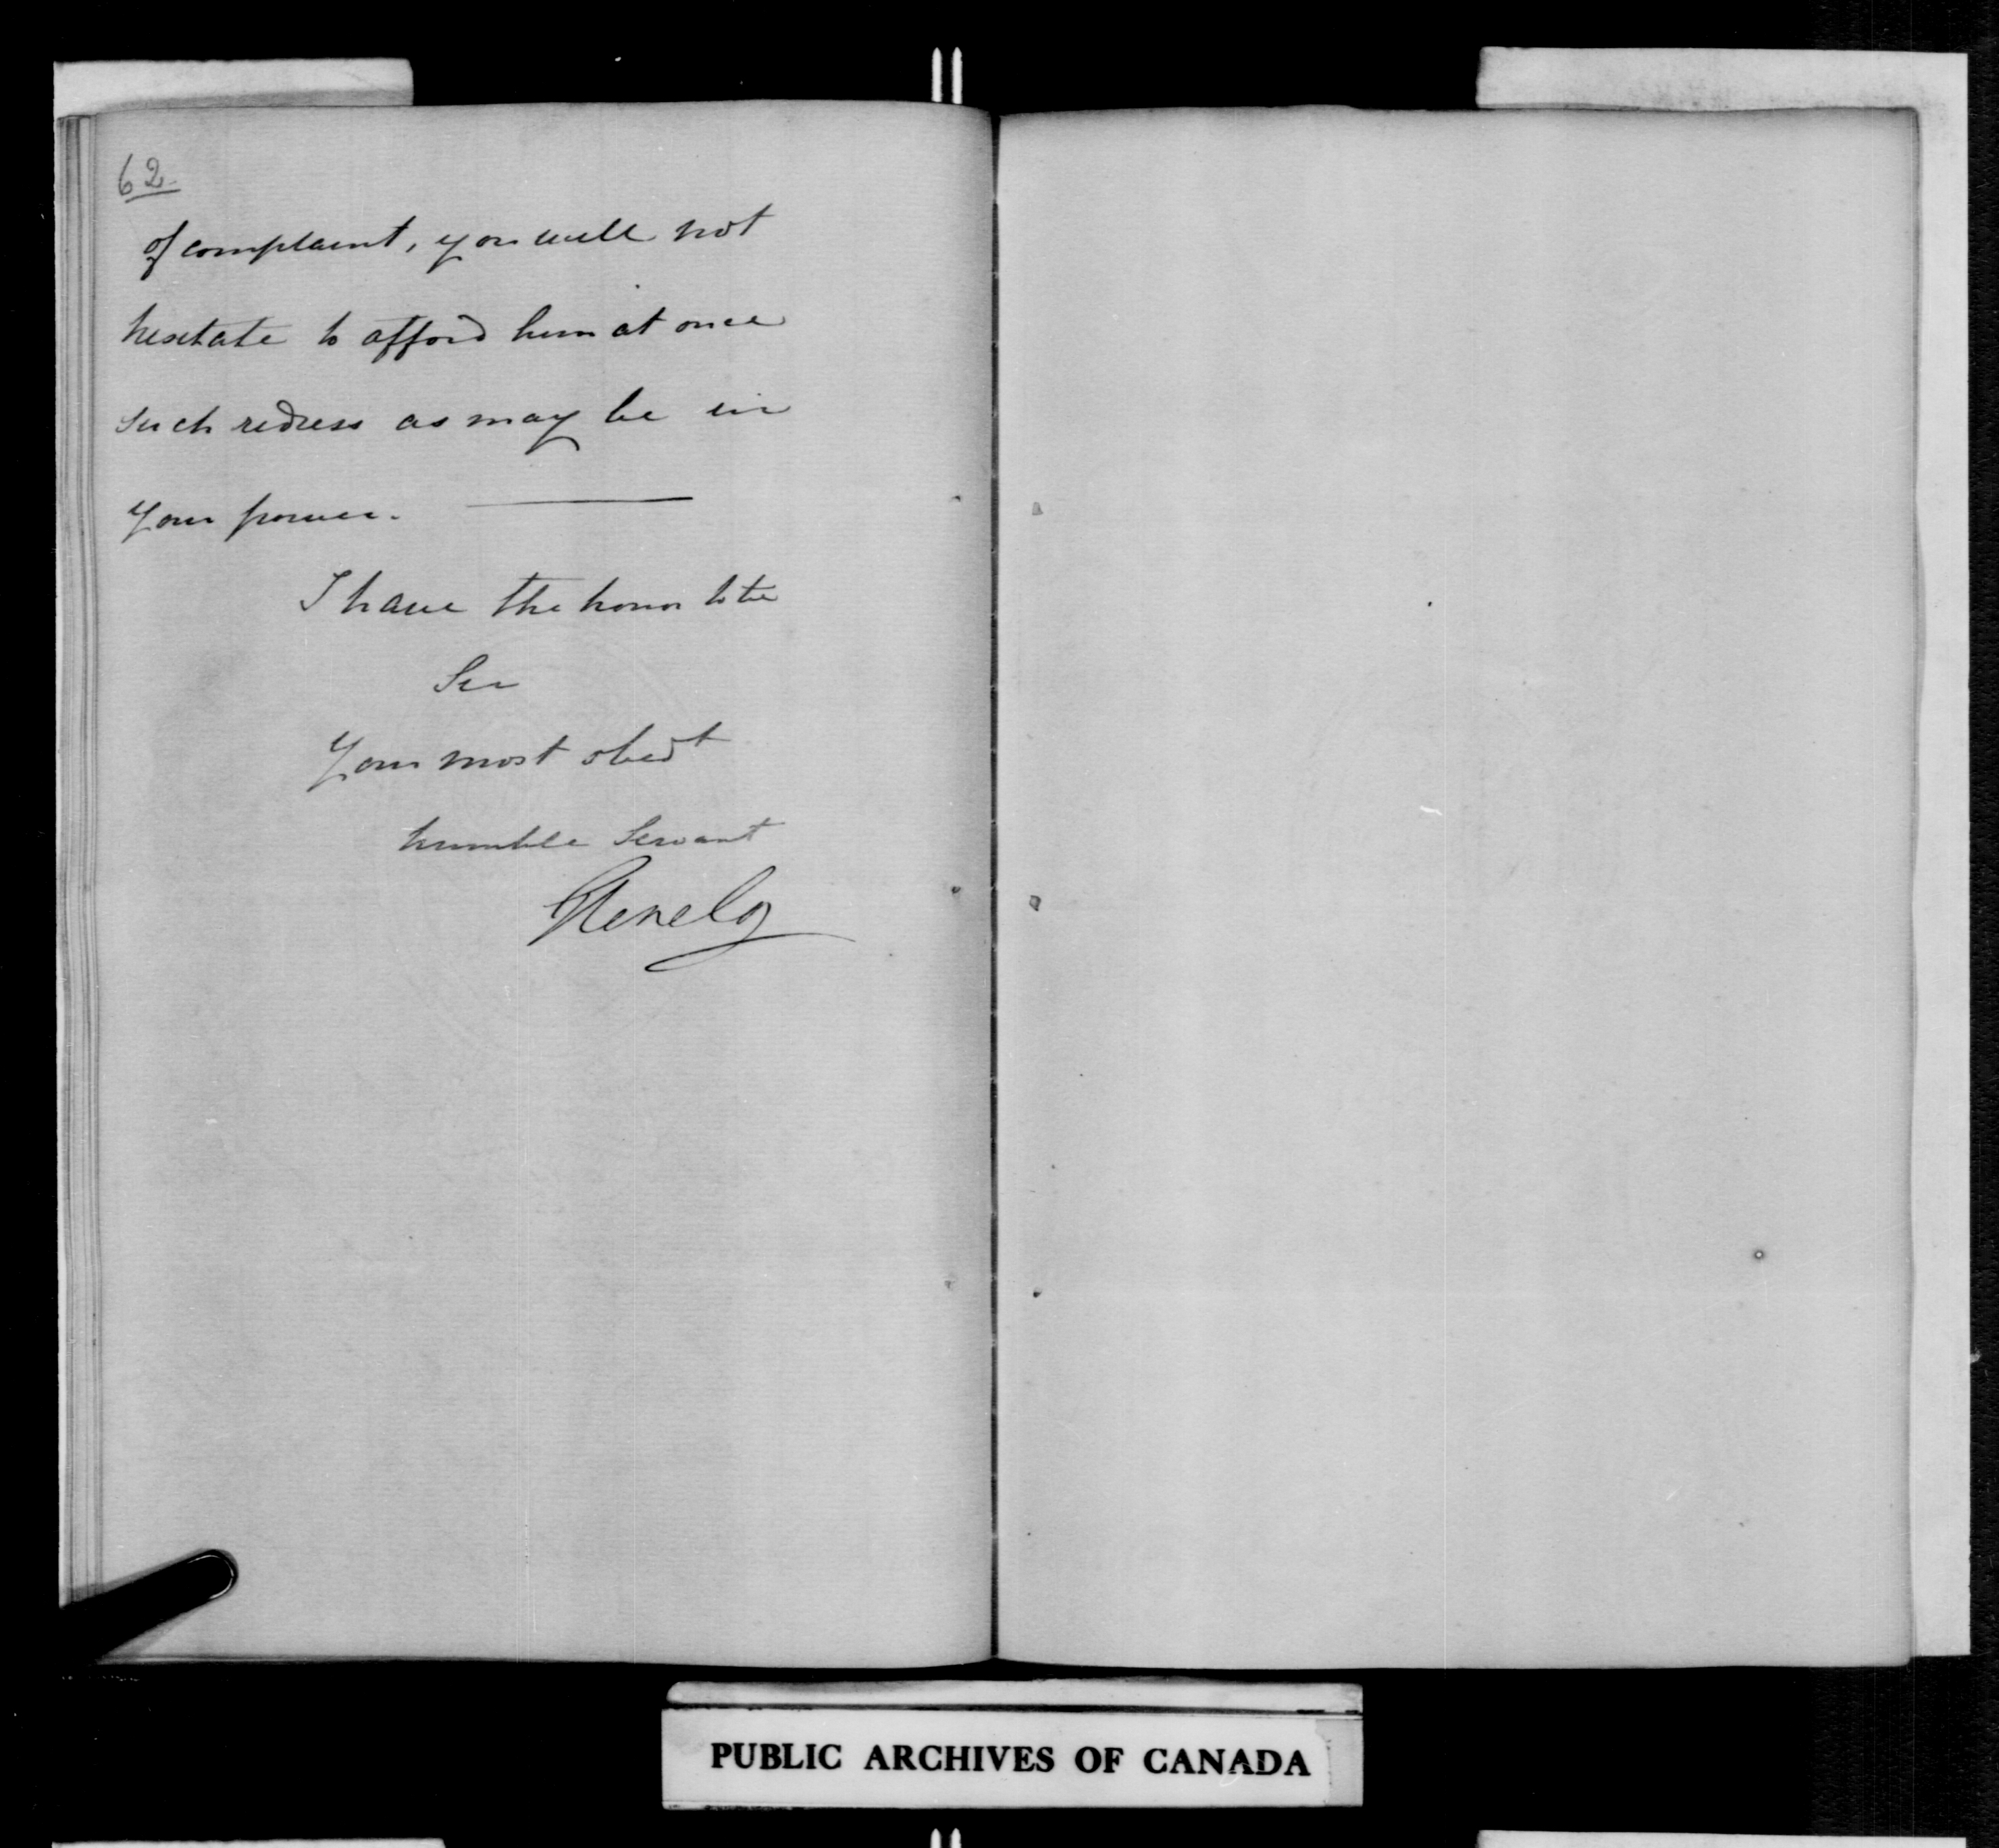 62.
of complaint, you will not
hesitate to afford him at once
such redress as may be in
your power.
I have the honor to be
Sir
Your most obedt
humble Servant
Glenelg
PUBLIC ARCHIVES OF CANADA